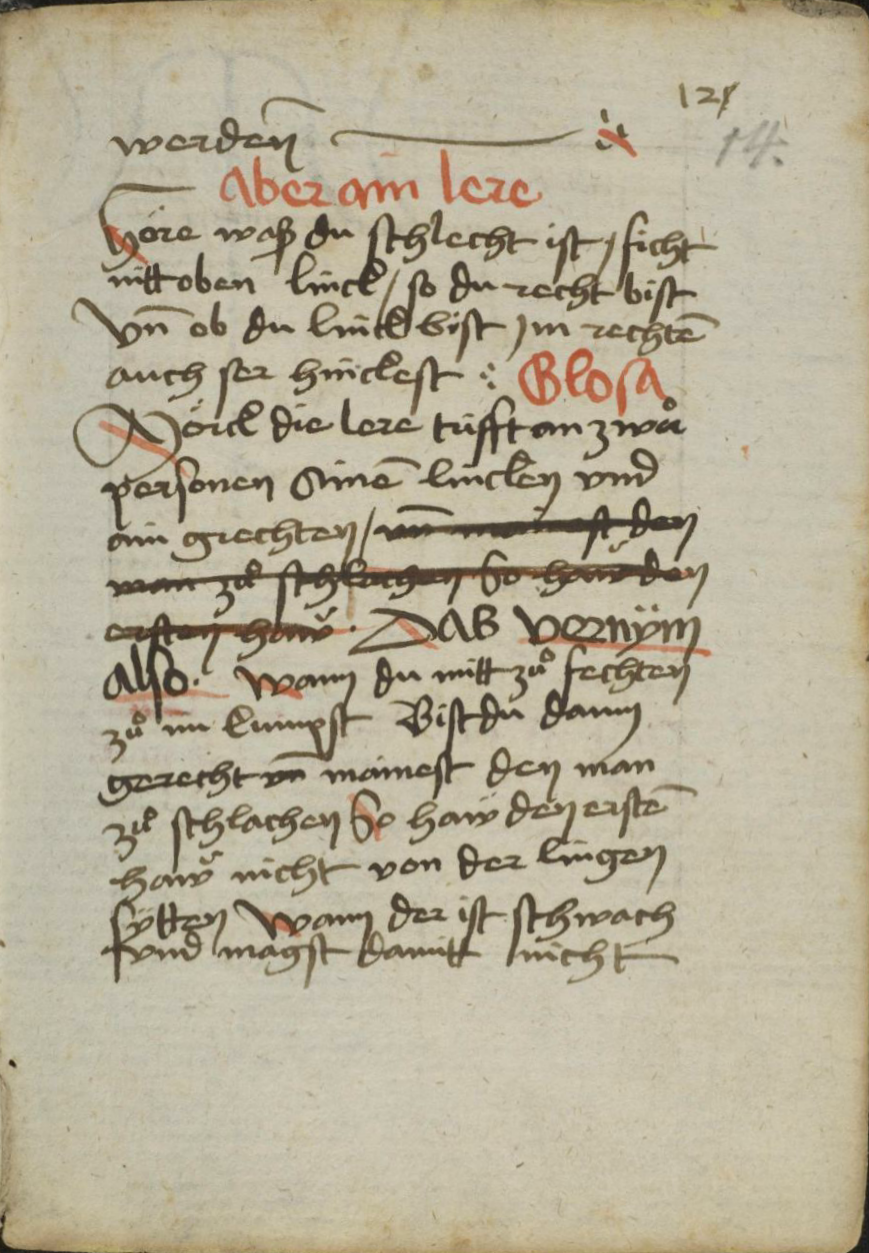 121
14.
werden̄
Aber ain lere
Höre waß du schlecht ist / ficht
nitt oben linck / so du recht bist
Vn̄ ob du linck bist / im rechtē
auch ser hinckest : Glosa
Mörck die lere trifft an zwů
personen Ainē lincken und
ain gerechten / vn̄ mainest den
man zů schlachen So haw den
ersten haw̆ . DAS vernÿm
also . Wann du mitt zů fechten
zů im kumpst Bist du dann
gerecht vn̄ mainest den man
zů schlachen So haw den erstē
haw̆ nicht von der lingen
sÿtten Wann der ist schwach
vnd magst damitt nicht